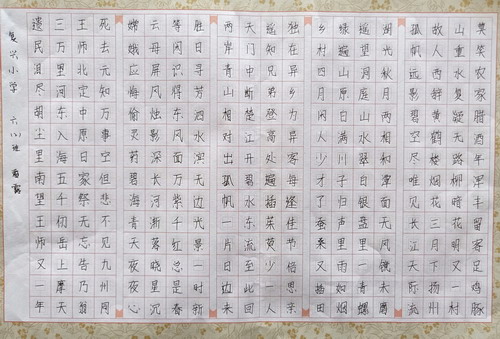 莫笑农家腊酒浑丰年留客足鸡豚
山重水复疑无路柳暗花明又一村
故人西辞黄鹤楼烟花三月下扬州
孤帆远影碧空尽唯见长江天际流
湖光秋月两相和潭面无风镜未磨
遥望洞庭山水翠白银盘里一青螺
绿遍山原白满川子规声里雨如烟
乡村四月闲人少才了蚕桑又插田
独在异乡为异客每逢佳节倍思亲
遥知兄弟登高处遍插茱萸少一人
天门中断楚江开碧水东流至此回
两岸青山相对出孤帆一片日边来
胜日寻芳泗水滨无边光景一时新
等闲识得东风面万紫千红总是春
云母屏风烛影深长河渐落晓星沉
嫦娥应悔偷灵药碧海青天夜夜心
死去元知万事空但悲不见九州同
王师北定中原日家祭无忘告乃翁
三万里河东入海五千仞岳上摩天
遗民泪尽胡尘里南望王师又一年
复兴小学 六 班